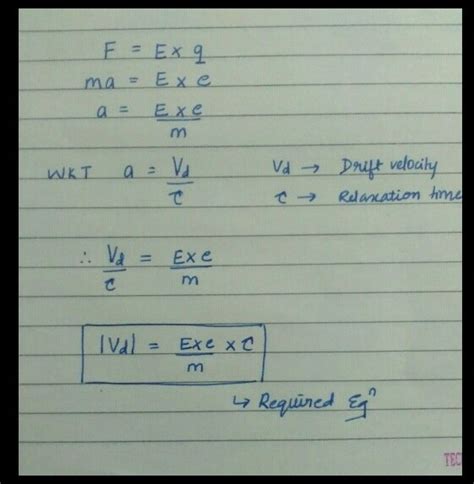 F = E x q
ma = E x e
a = E x e / m
WKT a = Vd / τ Vd → Drift velocity
τ → Relaxation time
∴ Vd / τ = E x e / m
|Vd| = E x e / m x τ
↳ Required Eqⁿ
TEC